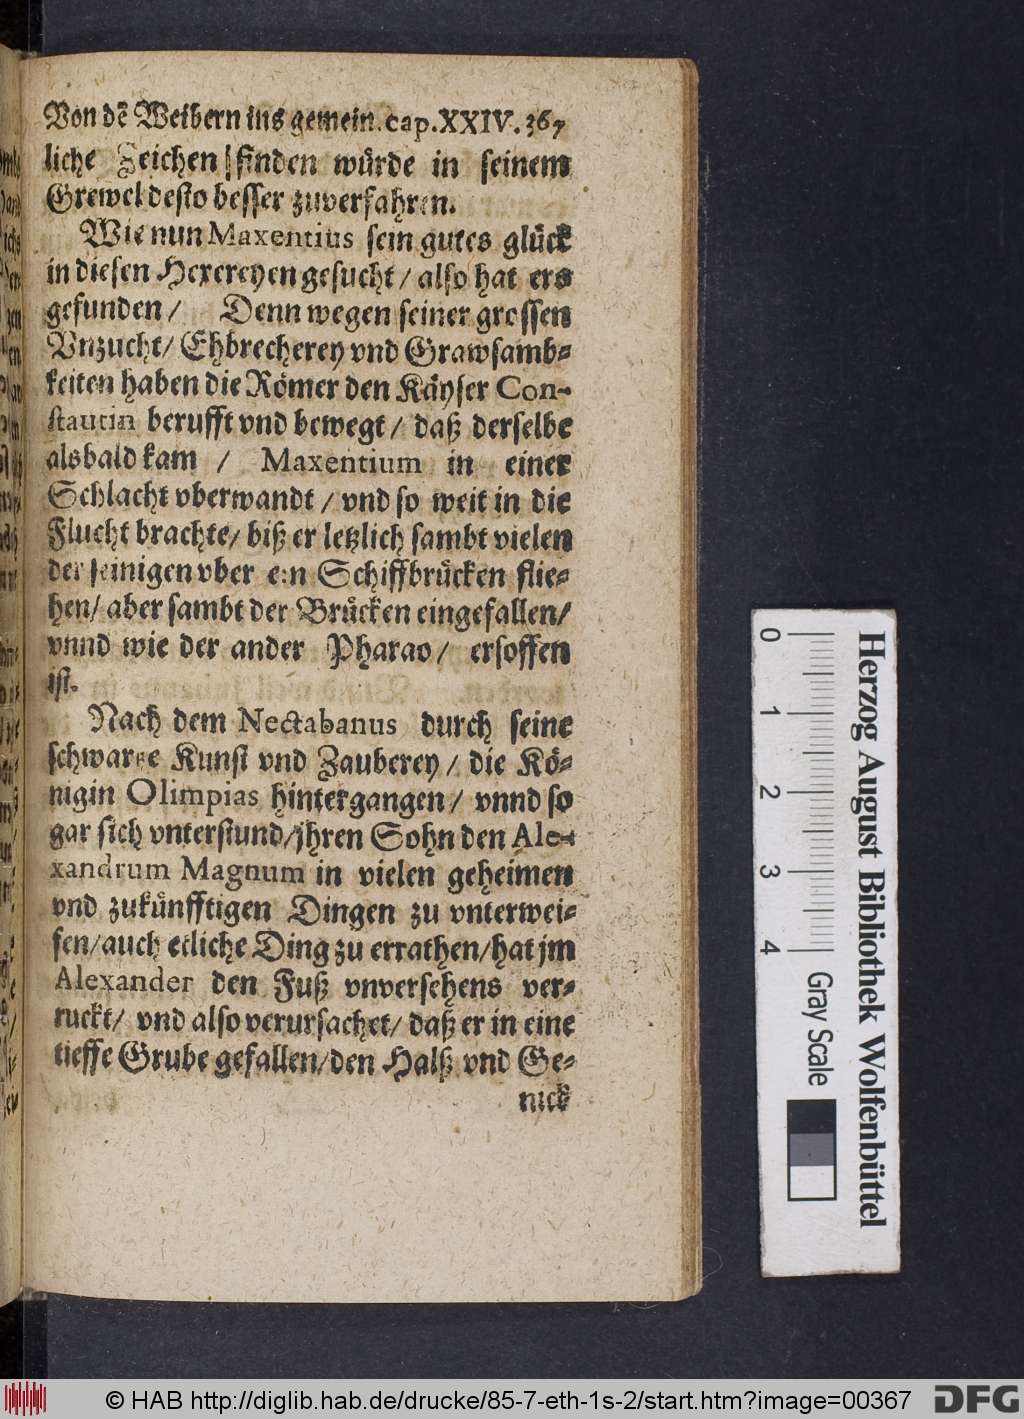 Von dẽ Weibern ins gemein. cap. XXIV. 367
liche Zeichen finden würde in seinem
Grewel desto besser zuverfahren.
Wie nun Maxentius sein gutes glück
in diesen Hexereyen gesucht / also hat ers
gefunden / Denn wegen seiner grossen
Vnzucht / Ehbrecherey vnd Grawsamb-
keiten haben die Römer den Käyser Con-
stautin berufft vnd bewegt / daß derselbe
alsbald kam / Maxentium in einer
Schlacht vberwandt / vnd so weit in die
Flucht brachte / biß er letzlich sambt vielen
der seinigen vber ein Schiffbrücken flie-
hen / aber sambt der Brücken eingefallen /
vnnd wie der ander Pharao / ersoffen
ist.
Nach dem Nectabanus durch seine
schwartze Kunst vnd Zauberey / die Kö-
nigin Olimpias hintergangen / vnnd so
gar sich vnterstund / jhren Sohn den Ale-
xandrum Magnum in vielen geheimen
vnd zukünfftigen Dingen zu vnterwei-
sen / auch etliche Ding zu errathen / hat jm
Alexander den Fuß vnversehens ver-
ruckt / vnd also verursachet / daß er in eine
tieffe Grube gefallen / den Halß vnd Ge-
nick
0 1 2 3 4
Gray Scale
Herzog August Bibliothek Wolfenbüttel
© HAB http://diglib.hab.de/drucke/85-7-eth-1s-2/start.htm?image=00367
DFG